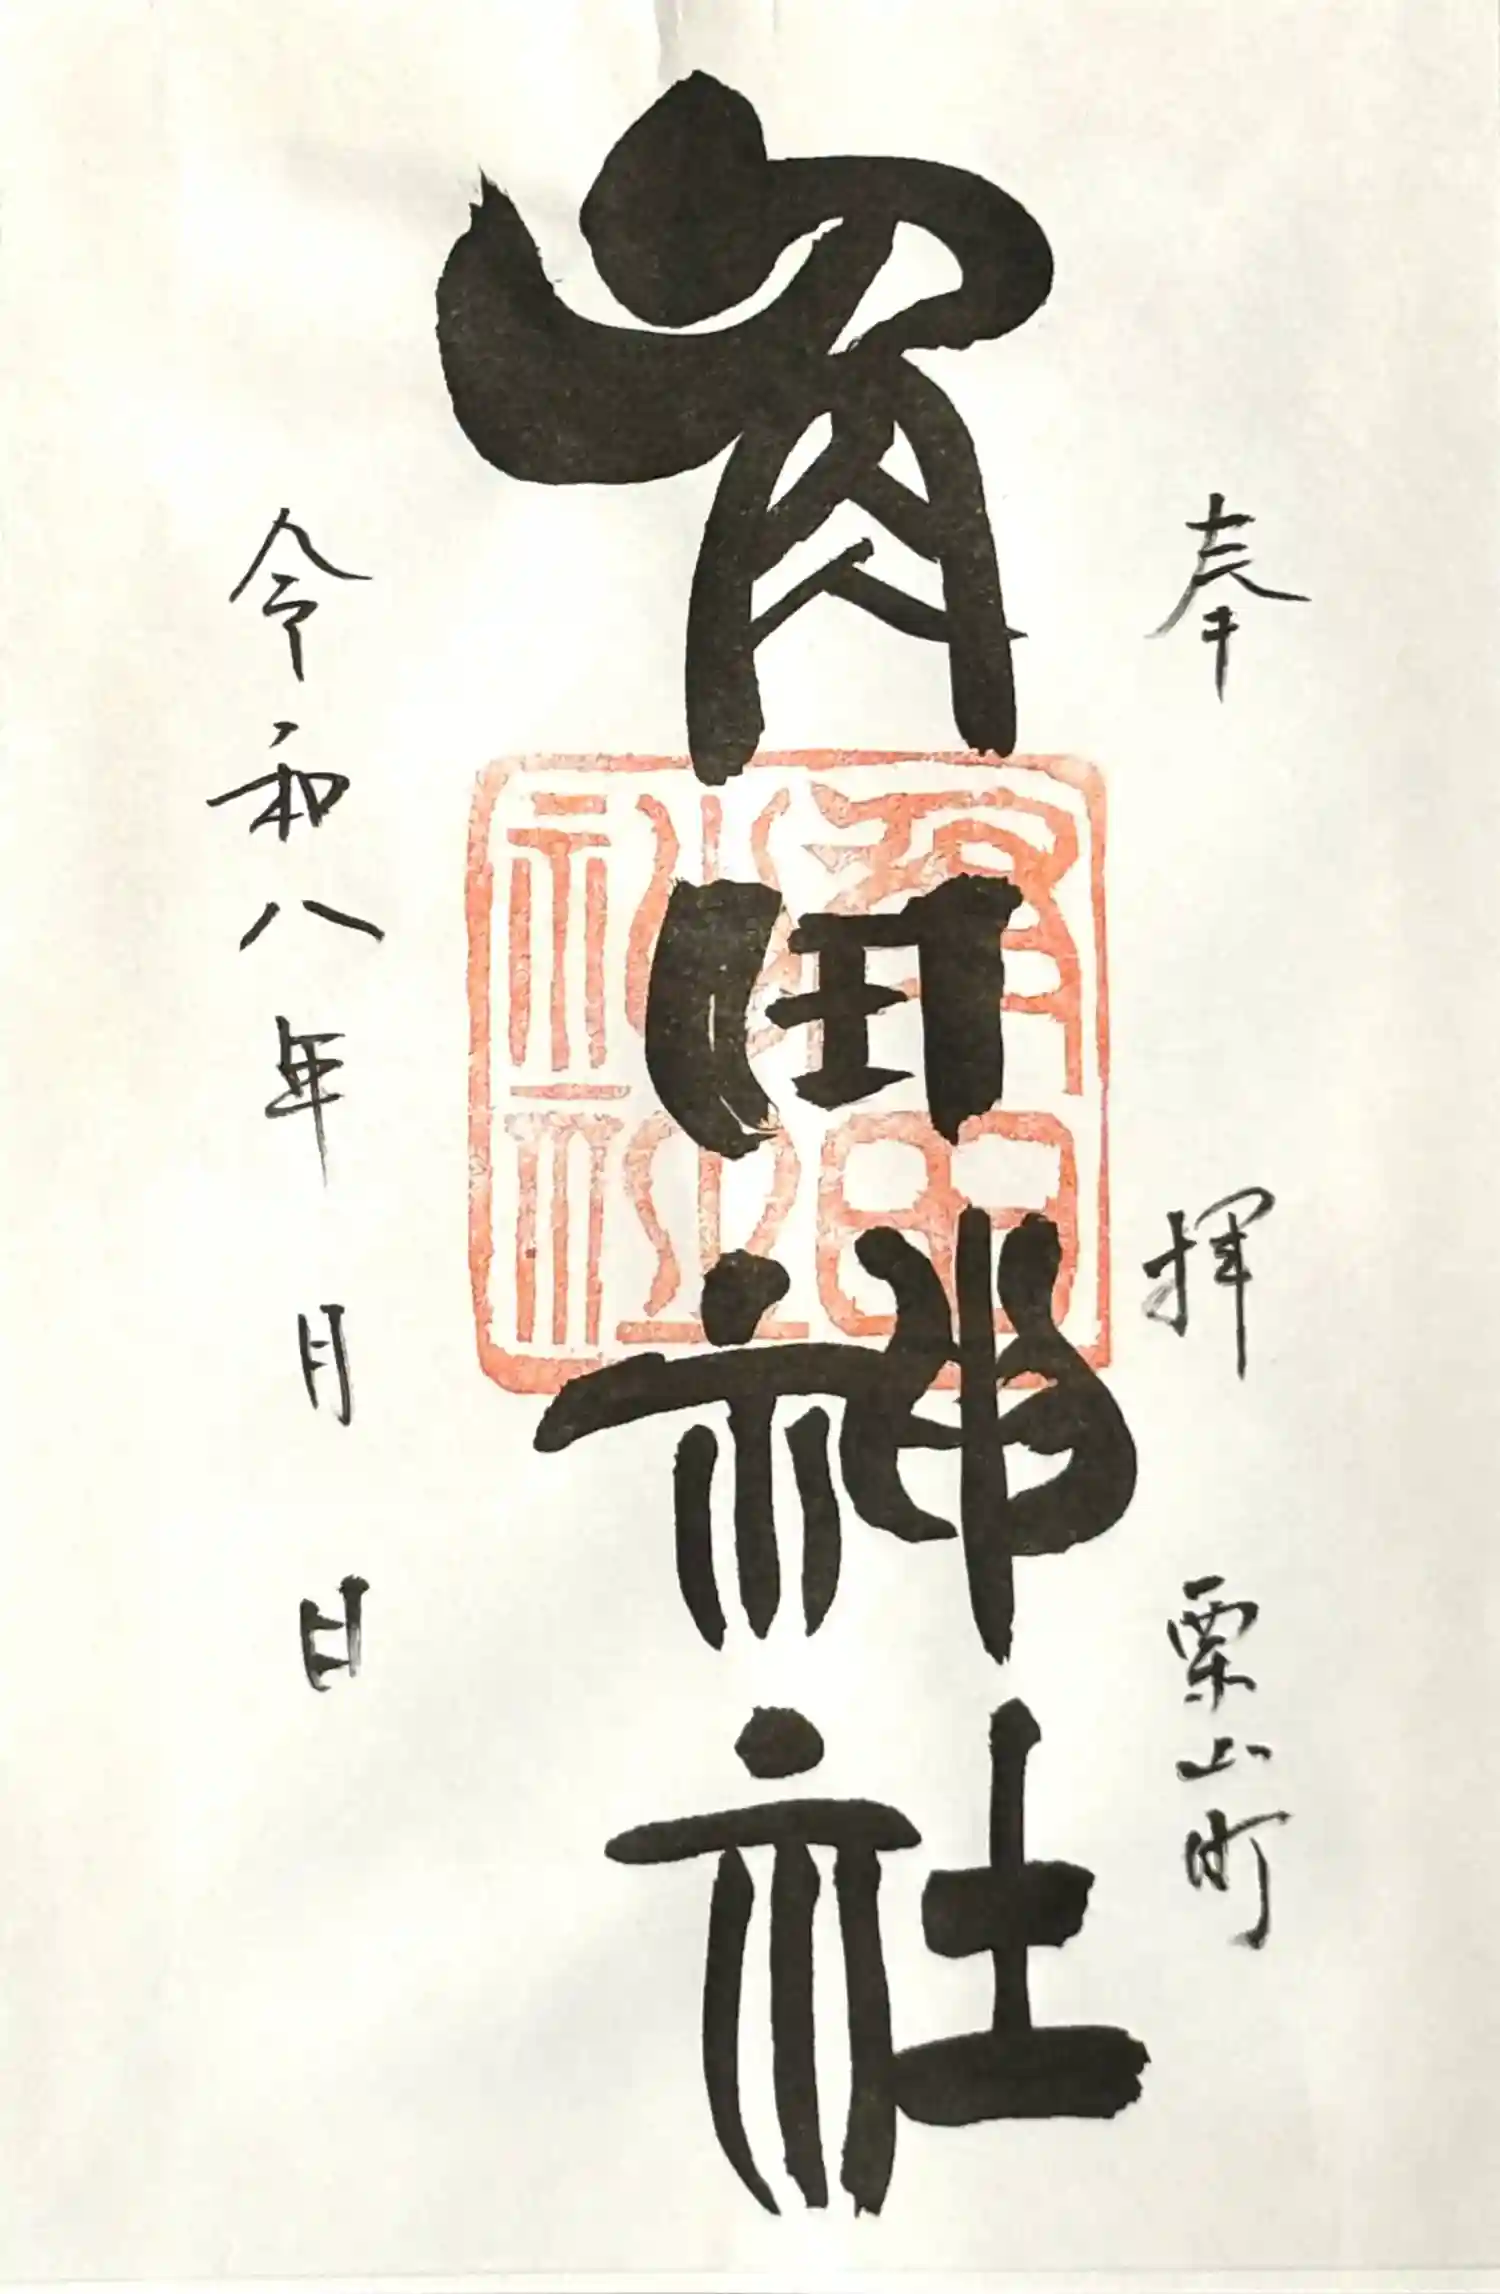 奉拝 栗山町
角田神社
角田
神社
令和八年月日